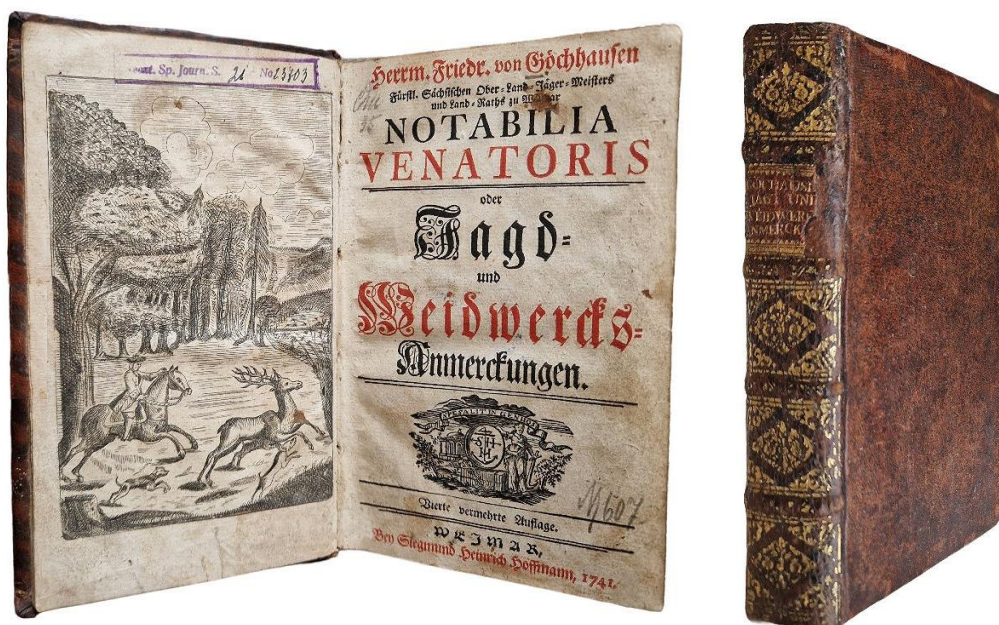 Sp. Journ. S. 21 No 25803
Herrm. Friedr. von Göchhausen
Fürstl. Sächsischen Ober-Land-Jäger-Meisters
und Land-Raths zu
NOTABILIA
VENATORIS
oder
Jagd-
und
Weidwercks-
Anmerckungen.
M607
Vierte vermehrte Auflage.
WEJMAR,
Bey Siegmund Heinrich Hoffmann, 1741.
JAGT UND